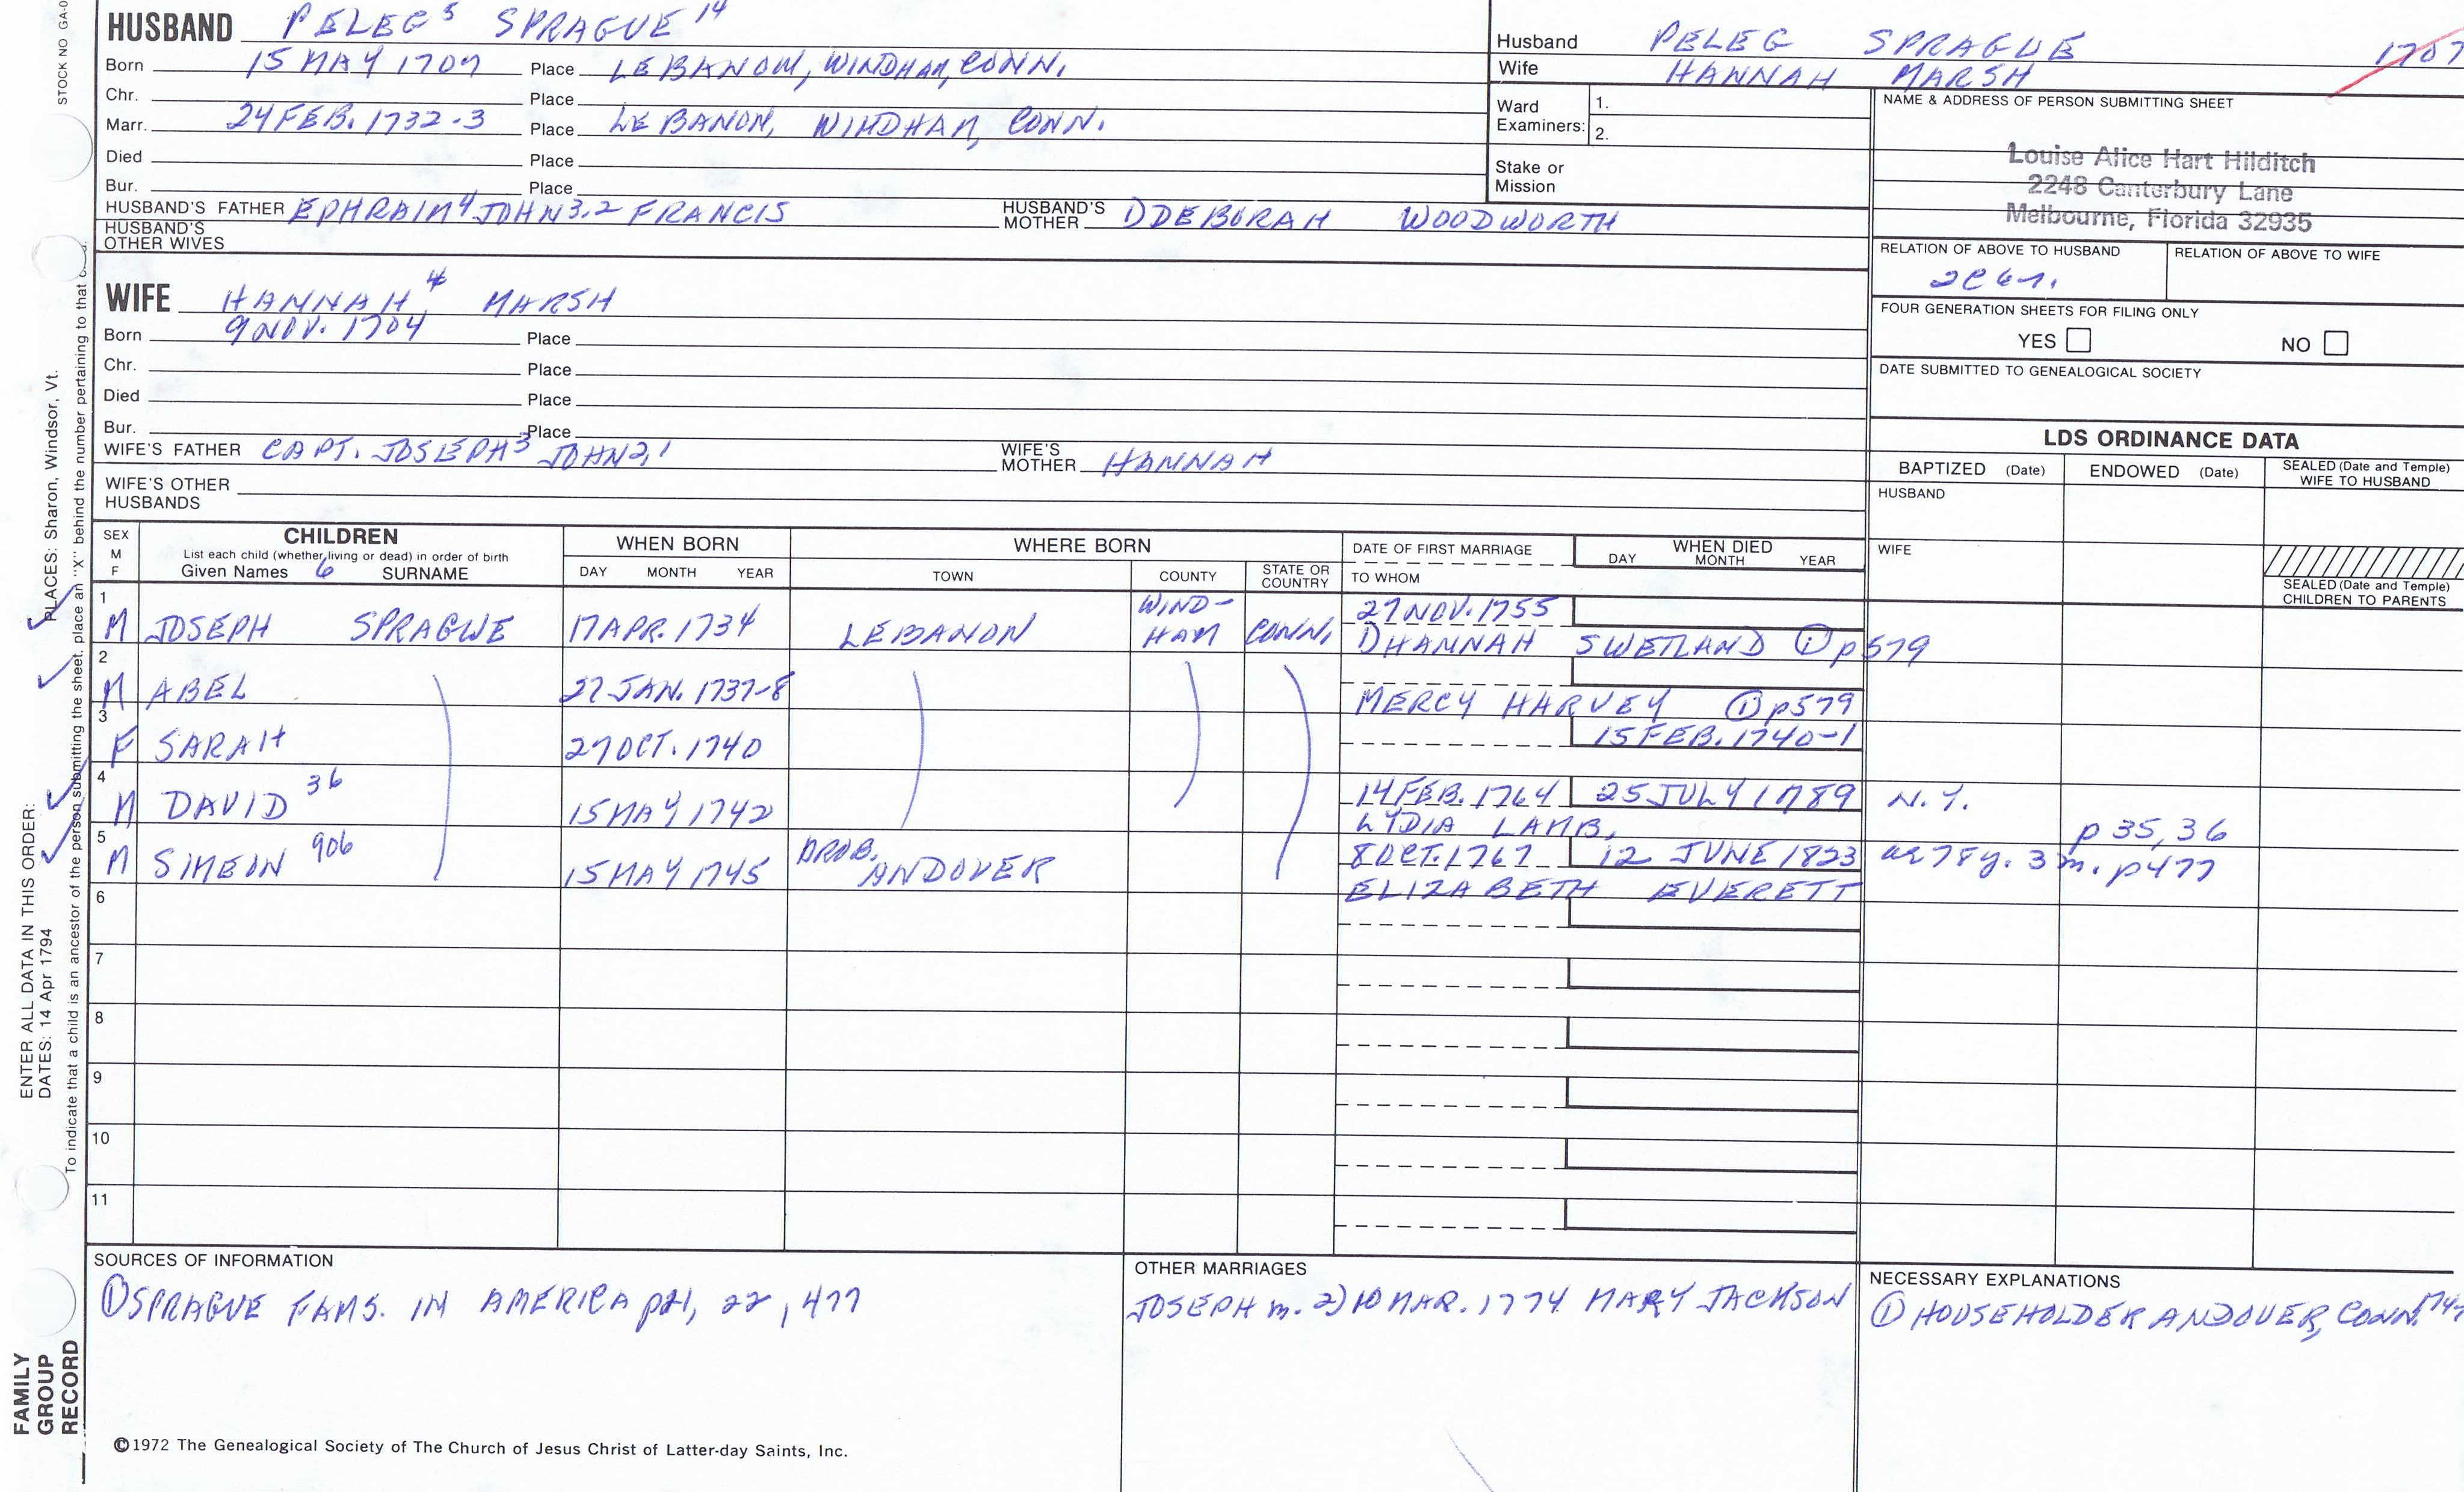 STOCK NO GA-0
HUSBAND PELEG 5 SPRAGUE 14
Born 15 MAY 1707 Place LEBANON, WINDHAM, CONN.
Chr. Place
Marr. 24 FEB. 1732-3 Place LEBANON, WINDHAM, CONN.
Died Place
Bur. Place
HUSBAND'S FATHER EPHRAIM 4 JOHN 3,2 FRANCIS HUSBAND'S MOTHER DDEBORAH WOODWORTH
HUSBAND'S OTHER WIVES
Husband PELEG SPRAGUE 1707
Wife HANNAH MARSH
Ward Examiners: 1.
2.
Stake or Mission
NAME & ADDRESS OF PERSON SUBMITTING SHEET
Louise Alice Hart Hilditch
2248 Canterbury Lane
Melbourne, Florida 32935
RELATION OF ABOVE TO HUSBAND RELATION OF ABOVE TO WIFE
FOUR GENERATION SHEETS FOR FILING ONLY
YES NO
DATE SUBMITTED TO GENEALOGICAL SOCIETY
WIFE HANNAH 4 MARSH
Born 9 NOV. 1704 Place
Chr. Place
Died Place
Bur. Place
WIFE'S FATHER CAPT. JOSEPH 3 JOHN 2,1 WIFE'S MOTHER HANNAH
WIFE'S OTHER HUSBANDS
LDS ORDINANCE DATA
BAPTIZED (Date) ENDOWED (Date) SEALED (Date and Temple) WIFE TO HUSBAND
HUSBAND
WIFE
SEALED (Date and Temple) CHILDREN TO PARENTS
SEX M F
CHILDREN
List each child (whether living or dead) in order of birth
Given Names 6 SURNAME
WHEN BORN
DAY MONTH YEAR
WHERE BORN
TOWN COUNTY STATE OR COUNTRY
DATE OF FIRST MARRIAGE
TO WHOM
WHEN DIED
DAY MONTH YEAR
1 M JOSEPH SPRAGUE 17 APR. 1734 LEBANON WIND-HAM CONN. 27 NOV. 1755
DHANNAH SWETLAND ① p579
2 M ABEL 27 JAN. 1737-8
MERCY HARVEY ① p579
3 F SARAH 27 OCT. 1740 15 FEB. 1740-1
4 M DAVID 36 15 MAY 1742 14 FEB. 1764 25 JULY 1789 N.Y.
LYDIA LAMB, p 35, 36
5 M SIMEON 906 15 MAY 1745 PROB. ANDOVER 8 OCT. 1767 12 JUNE 1823 ae 78y. 3m. p477
ELIZABETH EVERETT
6
7
8
9
10
11
SOURCES OF INFORMATION
① SPRAGUE FAMS. IN AMERICA p21, 22, 477
OTHER MARRIAGES
JOSEPH m. 2) 10 MAR. 1774 MARY JACKSON
NECESSARY EXPLANATIONS
① HOUSEHOLDER ANDOVER, CONN. 174
©1972 The Genealogical Society of The Church of Jesus Christ of Latter-day Saints, Inc.
FAMILY GROUP RECORD
ENTER ALL DATA IN THIS ORDER:
DATES: 14 Apr 1794
PLACES: Sharon, Windsor, Vt.
To indicate that a child is an ancestor of the person submitting the sheet, place an "X" behind the number pertaining to that